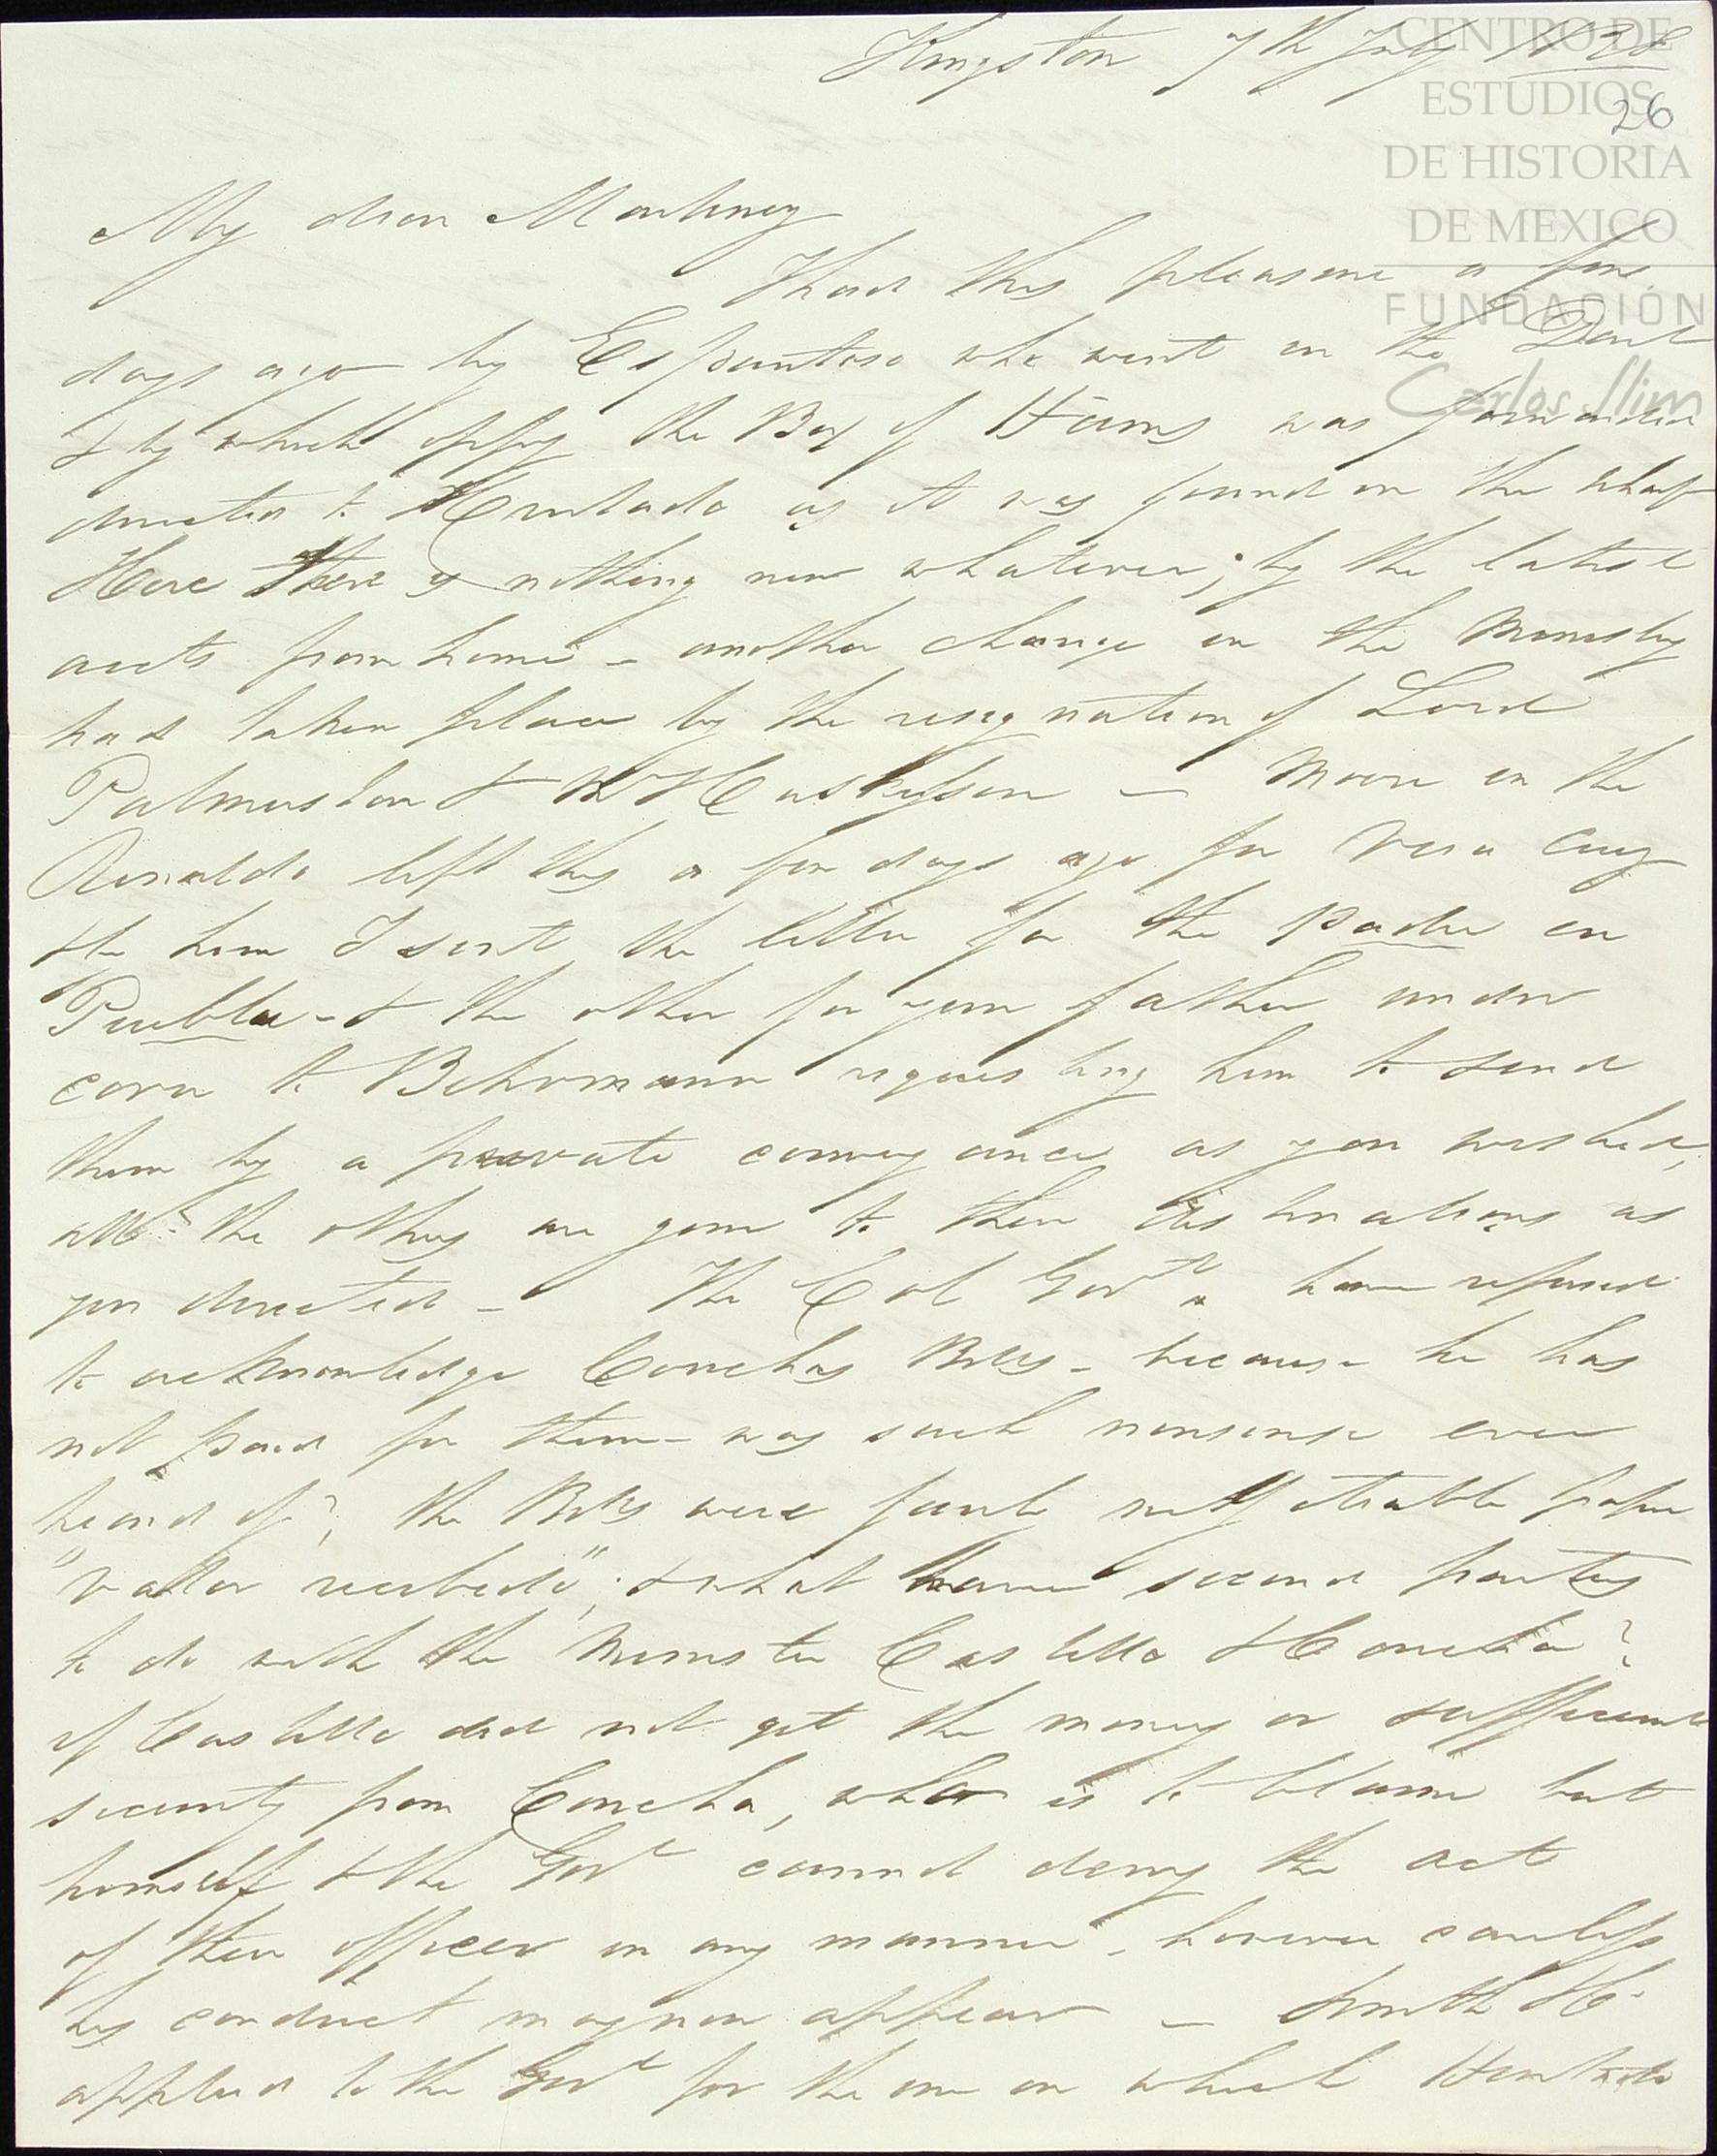 Kingston 7th July 1828
26
CENTRO DE
ESTUDIOS
DE HISTORIA
DE MEXICO
FUNDACIÓN
Carlos Slim
My dear Martinez
I had this pleasure a few
days ago by Espantoso who went in the
& by which oppy the Box of Hams was forwarded
directed to Hurtado as it was found on the wharf
Here there is nothing new whatever; by the latest
accts from home - another change in the Ministry
had taken place by the resignation of Lord
Palmerston & Mr Huskisson - Moore in the
Rinaldo left this a few days ago for Vera Cruz
& by him I sent the letter for the padre in
Puebla - & the other for your father under
cover to Behrmann requesting him to send
them by a private conveyance as you wished,
all the others are gone to their destinations as
you directed - The Col Govt have refused
to acknowledge Conchas Bills - because he has
not paid for them - was such nonsense ever
heard of?, the Bills were fairly negotiable paper
"valor recibido"; & what have second parties
to do with the Minister Castillo & Concha?
if Castillo did not get the money or sufficient
security from Concha, who is to blame but
himself & the Govt cannot deny the acts
of their officer in any manner, however careless
his conduct may now appear - Smith Ho.
applied to the Govt for the one on which Hurtado